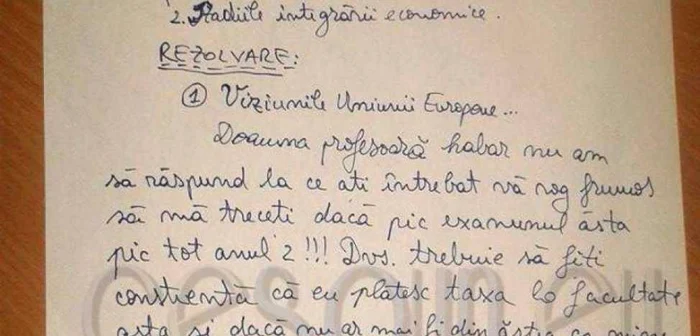 2. Stadiile integrării economice.
REZOLVARE:
① Viziunile Uniunii Europene...
Doamna profesoară habar nu am
să răspund la ce ati întrebat vă rog frumos
să mă treceti dacă pic examunul ăsta
pic tot anul 2 !!! Dvs. trebuie să fiti
constientă că eu plătesc taxa la facultate
asta si dacă nu ar mai fi din ăstia ca mine